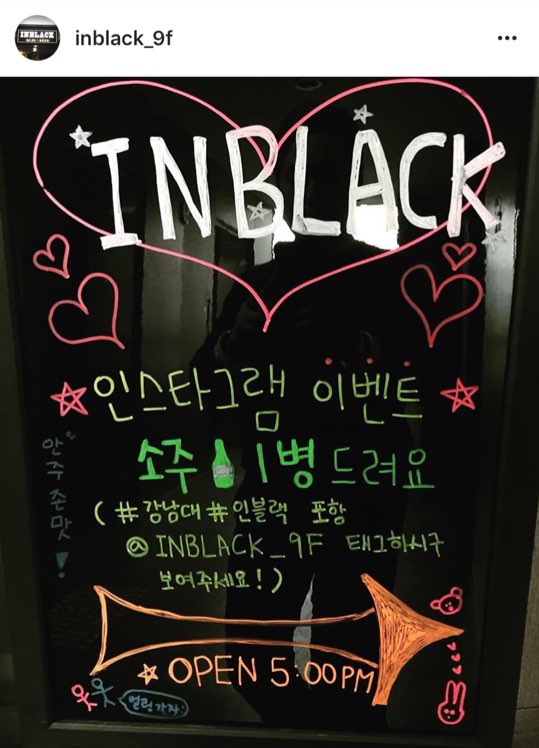 INBLACK
inblack_9f
INBLACK
인스타그램 이벤트
소주 1병 드려요
(#강남대#인블랙 포함
@INBLACK_9F 태그하시구
보여주세요!)
안주존맛!
OPEN 5:00PM
얼른가자!